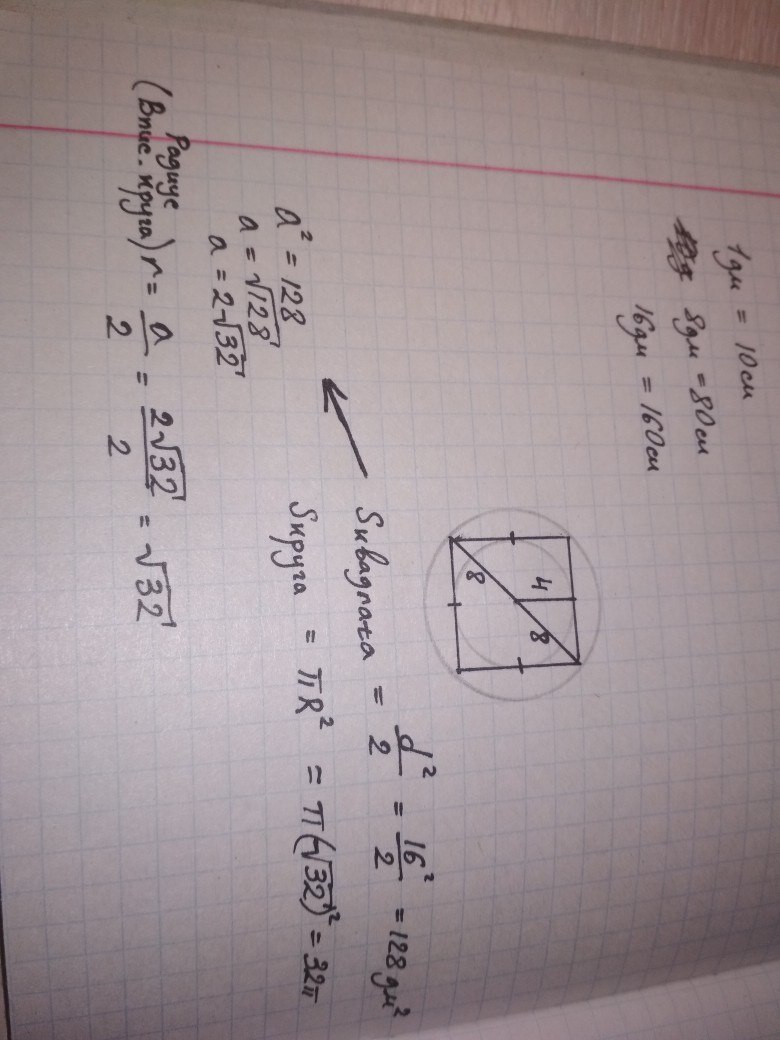 1 дм = 10 см
8 дм = 80 см
16 дм = 160 см
8
4
8
Sквадрата = d²/2 = 16²/2 = 128 дм²
Sкруга = πR² = π(√32)² = 32π
a² = 128
a = √128
a = 2√32
Радиус
(Впис. круга) r = a/2 = 2√32/2 = √32